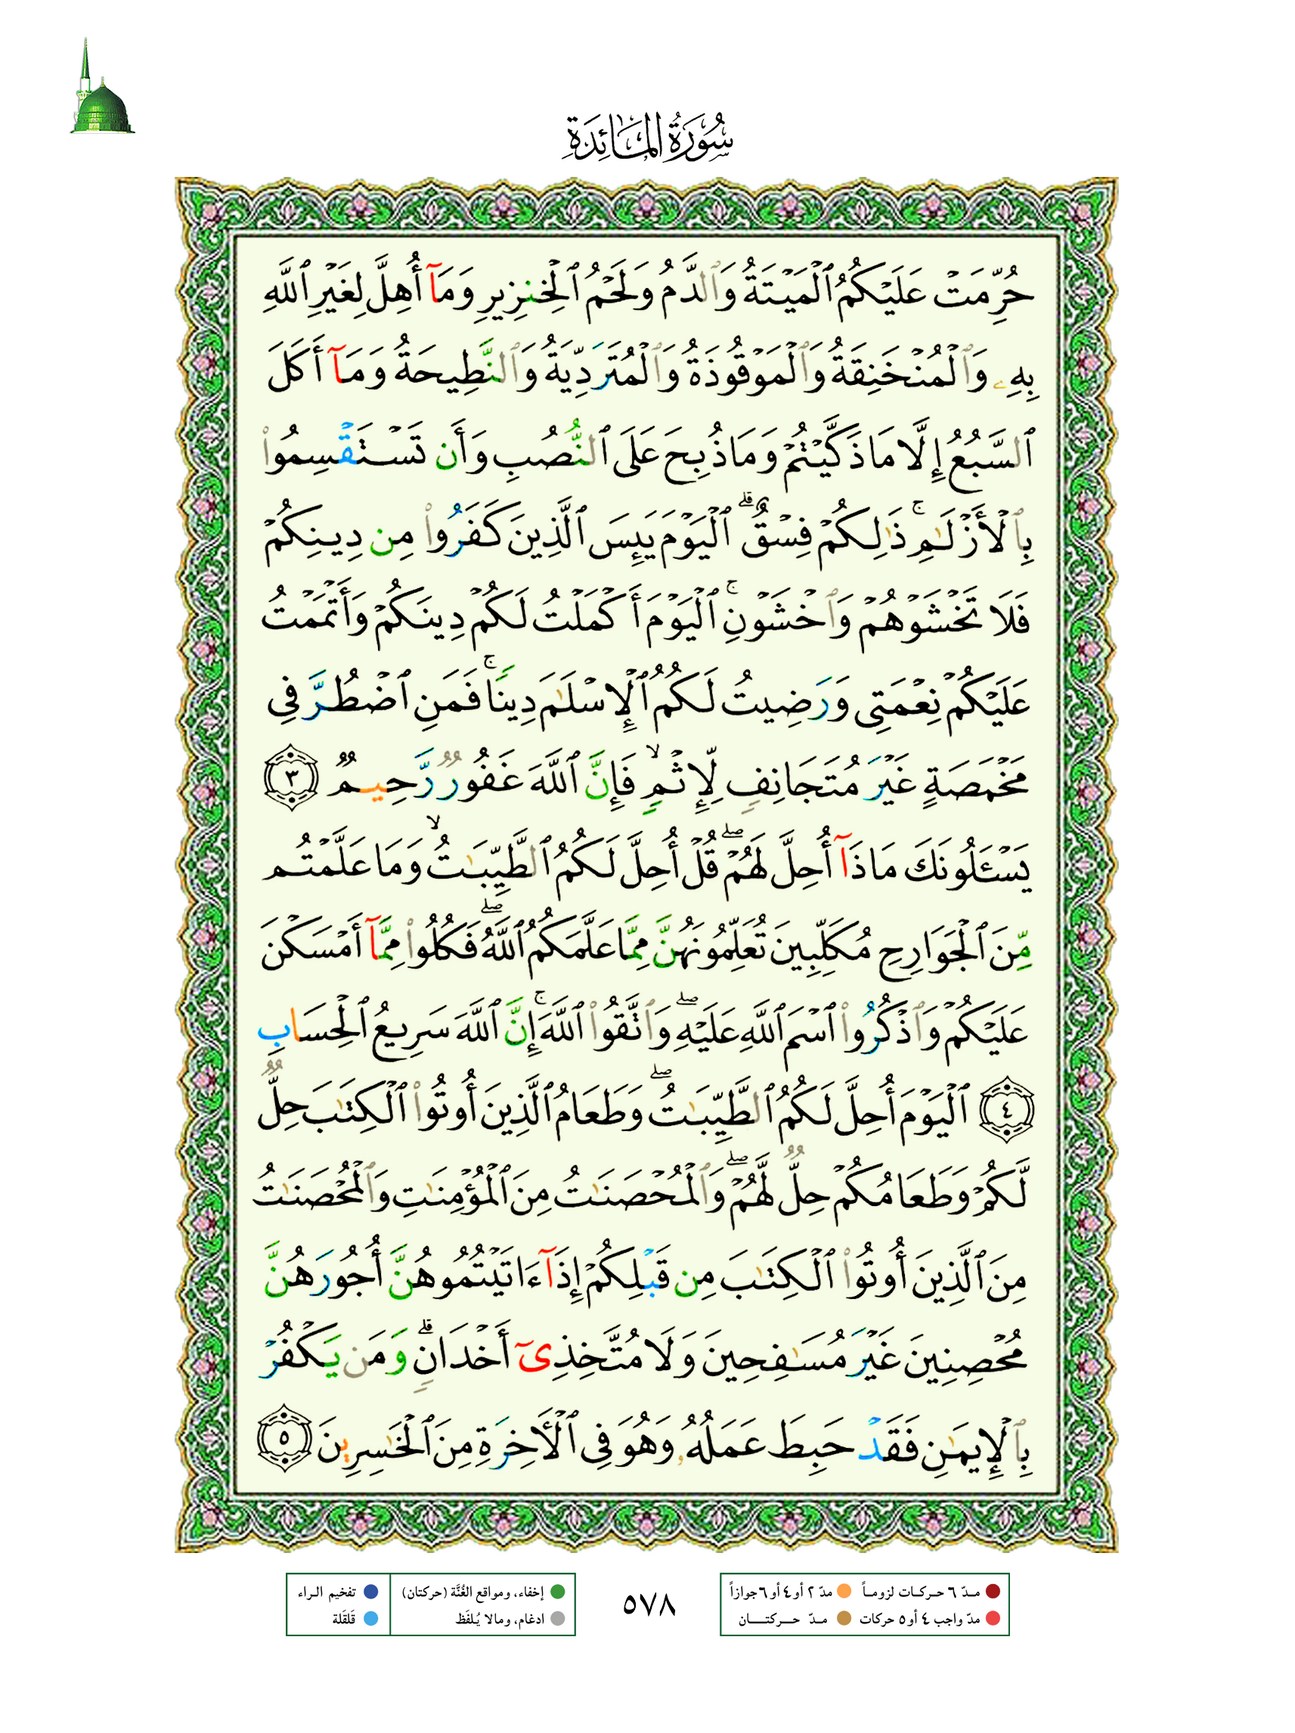 سُورَةُ المَائِدَةِ
حُرِّمَتْ عَلَيْكُمُ ٱلْمَيْتَةُ وَٱلدَّمُ وَلَحْمُ ٱلْخِنزِيرِ وَمَآ أُهِلَّ لِغَيْرِ ٱللَّهِ
بِهِۦ وَٱلْمُنْخَنِقَةُ وَٱلْمَوْقُوذَةُ وَٱلْمُتَرَدِّيَةُ وَٱلنَّطِيحَةُ وَمَآ أَكَلَ
ٱلسَّبُعُ إِلَّا مَا ذَكَّيْتُمْ وَمَا ذُبِحَ عَلَى ٱلنُّصُبِ وَأَن تَسْتَقْسِمُوا۟
بِٱلْأَزْلَٰمِ ۚ ذَٰلِكُمْ فِسْقٌ ۗ ٱلْيَوْمَ يَئِسَ ٱلَّذِينَ كَفَرُوا۟ مِن دِينِكُمْ
فَلَا تَخْشَوْهُمْ وَٱخْشَوْنِ ۚ ٱلْيَوْمَ أَكْمَلْتُ لَكُمْ دِينَكُمْ وَأَتْمَمْتُ
عَلَيْكُمْ نِعْمَتِى وَرَضِيتُ لَكُمُ ٱلْإِسْلَٰمَ دِينًا ۚ فَمَنِ ٱضْطُرَّ فِى
مَخْمَصَةٍ غَيْرَ مُتَجَانِفٍ لِّإِثْمٍ ۙ فَإِنَّ ٱللَّهَ غَفُورٌ رَّحِيمٌ ٣
يَسْـَٔلُونَكَ مَاذَآ أُحِلَّ لَهُمْ ۖ قُلْ أُحِلَّ لَكُمُ ٱلطَّيِّبَٰتُ ۙ وَمَا عَلَّمْتُم
مِّنَ ٱلْجَوَارِحِ مُكَلِّبِينَ تُعَلِّمُونَهُنَّ مِمَّا عَلَّمَكُمُ ٱللَّهُ ۖ فَكُلُوا۟ مِمَّآ أَمْسَكْنَ
عَلَيْكُمْ وَٱذْكُرُوا۟ ٱسْمَ ٱللَّهِ عَلَيْهِ ۖ وَٱتَّقُوا۟ ٱللَّهَ ۚ إِنَّ ٱللَّهَ سَرِيعُ ٱلْحِسَابِ
٤ ٱلْيَوْمَ أُحِلَّ لَكُمُ ٱلطَّيِّبَٰتُ ۖ وَطَعَامُ ٱلَّذِينَ أُوتُوا۟ ٱلْكِتَٰبَ حِلٌّ
لَّكُمْ وَطَعَامُكُمْ حِلٌّ لَّهُمْ ۖ وَٱلْمُحْصَنَٰتُ مِنَ ٱلْمُؤْمِنَٰتِ وَٱلْمُحْصَنَٰتُ
مِنَ ٱلَّذِينَ أُوتُوا۟ ٱلْكِتَٰبَ مِن قَبْلِكُمْ إِذَآ ءَاتَيْتُمُوهُنَّ أُجُورَهُنَّ
مُحْصِنِينَ غَيْرَ مُسَٰفِحِينَ وَلَا مُتَّخِذِىٓ أَخْدَانٍ ۗ وَمَن يَكْفُرْ
بِٱلْإِيمَٰنِ فَقَدْ حَبِطَ عَمَلُهُۥ وَهُوَ فِى ٱلْـَٔاخِرَةِ مِنَ ٱلْخَٰسِرِينَ ٥
مدّ ٦ حركات لزوماً مدّ ٢ أو ٤ أو ٦ جوازاً
مدّ واجب ٤ أو ٥ حركات مدّ حركتان
٥٧٨
إخفاء، ومواقع الغُنَّة (حركتان) تفخيم الراء
ادغام، ومالا يُلفَظ قَلقَلة